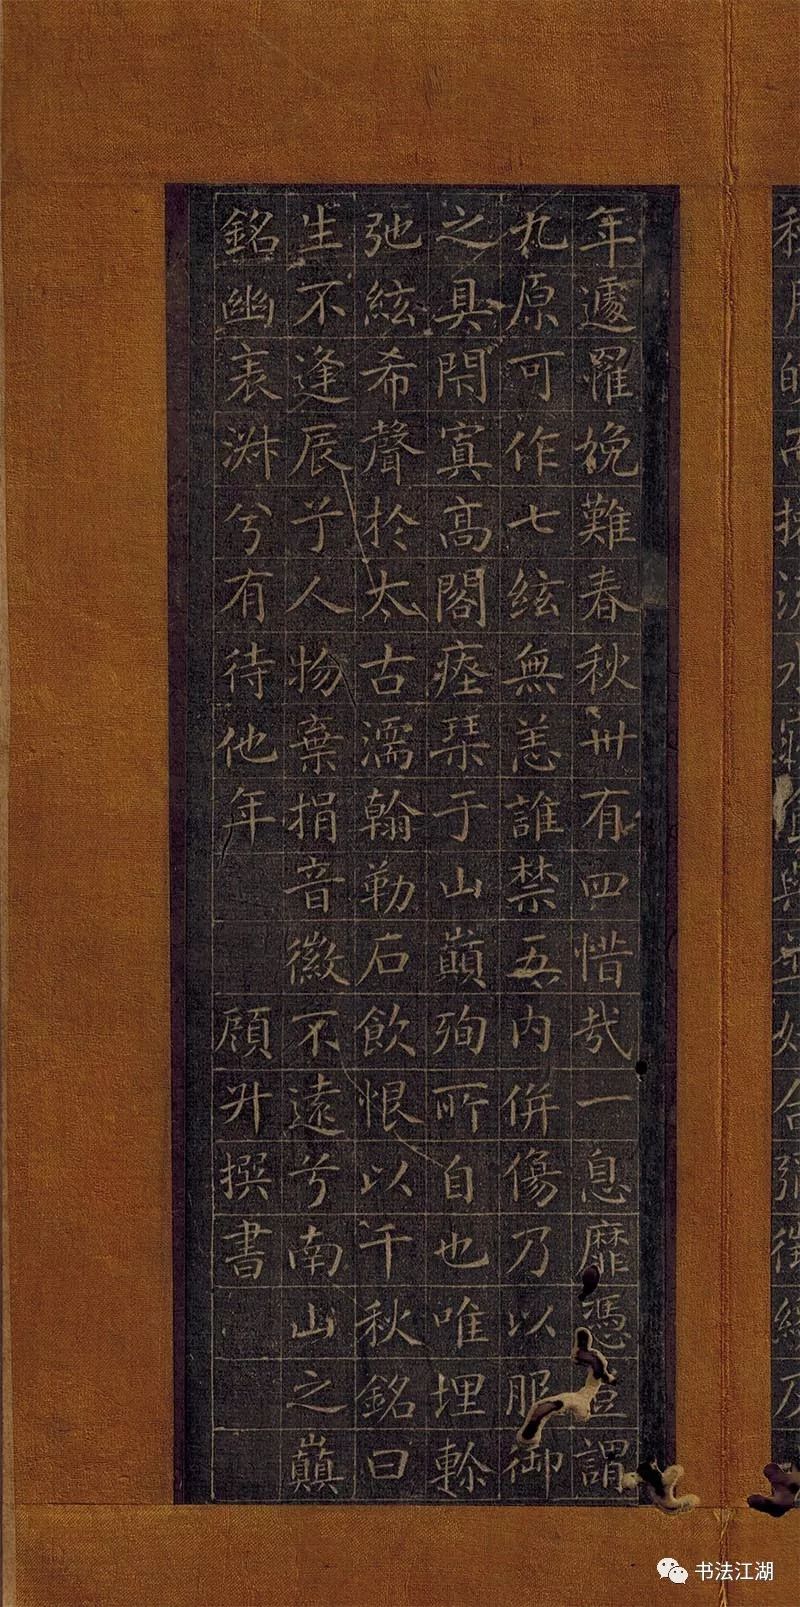 年遽罹娩難春秋卅有四惜哉一息靡憑豈謂
九原可作七絃無恙誰禁五內併傷乃以服御
之具閉寘高閣瘞琹于山巔殉所自也唯埋軫
弛絃希聲於太古濡翰勒石飲恨以千秋銘曰
生不逢辰兮人物棄捐音徽不遠兮南山之巔
銘幽表淑兮有待他年 顧升撰書
书法江湖